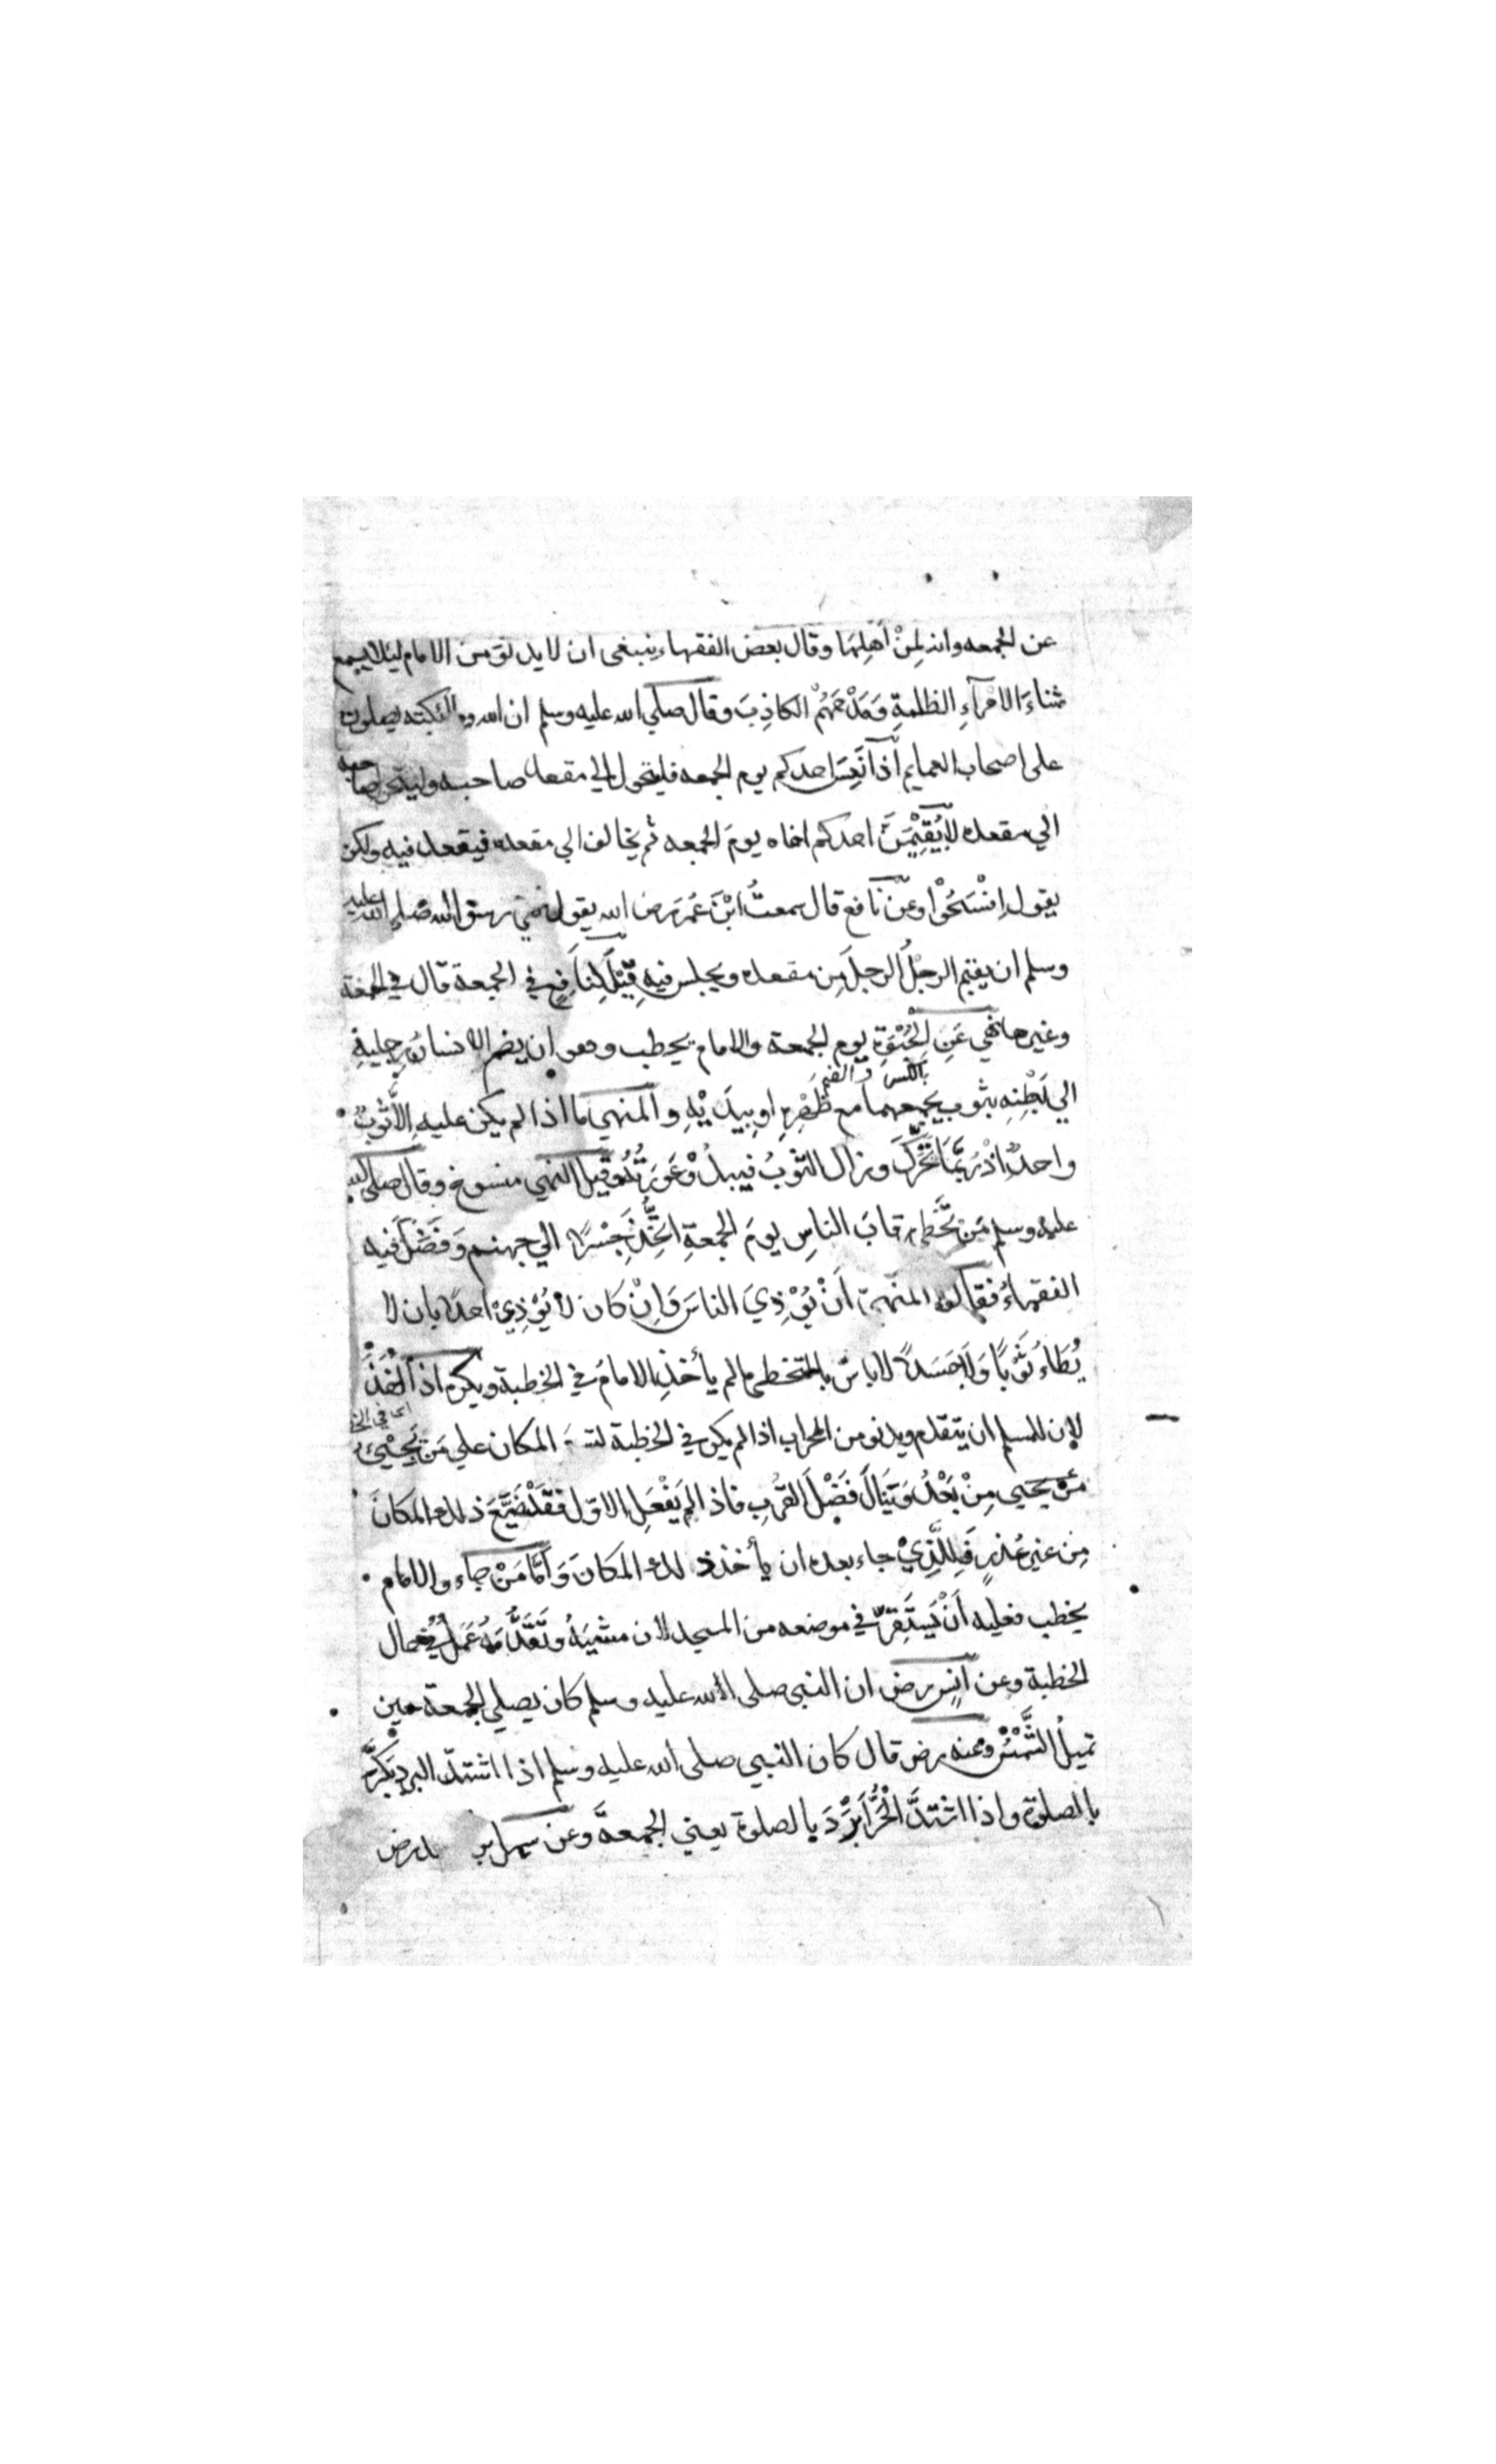 عن الجمعه وانه لِمنْ اَهلِهَا وقال بعض الفقهاء ينبغى ان لا يدنوَ من الامام ليئلا يسمع
ثناءَ الامرآءِ الظلمةِ وَمَدْحَهُمْ الكاذِبَ وقال صلي الله عليه وسلم ان الله وملائكته يصلون
على اصحاب العمايم اذا نَعِسَ احدكم يوم الجمعه فليتحول الي مقعد صاحبه وليتحول صاحبه
الي مقعده لا يُقِيْمَنَّ احدكم اخاه يومَ الجمعه ثم يخالف الي مقعده فيقعد فيه ولكن
يقول اِفْسَحُوْا وعن نافع قال سمعتُ ابْنَ عُمَرَ رض الله يقول نهي رسول الله صلي الله عليه
وسلم ان يقيم الرجلُ الرجلَ مِن مقعده ويجلس فيه قِيْلَ لِنافِعٍ في الجمعة قال في الجمعة
وغيرها نهي عَنِ الحُبْوَةِ يوم الجمعة والامام يخطب وهو ان يضم الانسانُ رجليهِ
بالكسر والضم
الي بَطْنِهِ بثوب يجمعهما مع ظَهْرِهِ او بِيَدَيْهِ والمنهي ما اذا لم يكن عليهِ الاّ ثوبٌ
واحدٌ اِذْ رُبَّمَا تَحَرَّكَ وزال الثوبُ فيبدُوْ عَوْرَتُهُ وقيل النهي منسوخ وقال صلي الله
عليه وسلم مَن تَخَطي رقابَ الناسِ يومَ الجمعةِ اتُّخِذَ جِسْرًا الي جهنم وَفَصَّلَ فيه
الفقهاءُ فقالوا المنهي اَنْ يُؤْذِيَ الناسَ وَاِنْ كان لا يُؤْذِيْ احدًا بان لا
يُطَاءُ ثَوْبًا وَلَا جَسَدًا لا باسَ بالتخطي ما لم يأخذِ الامامُ في الخطبة ويكره اذا اَخَذَ
اى في الخ
لان للمسلم ان يتقدم ويدنو من المحراب اذا لم يكن في الخطبة المكان علي مَن يَجِيْئُ
مَنْ يجيى مِنْ بَعْدُ وَيَنَالَ فَضْلَ القُرْبِ فاذا لم يَفْعَلِ الاوّل فقدْ ضَيَّعَ ذلك المكانَ
مِن غيرِ عُذرٍ فَلِلَّذِيْ جاء بعده ان يأخذ ذلك المكانَ وَاَمَّا مَنْ جاء والامام
يخطب فعليه اَنْ يَسْتَقِرَّ في موضعه من المسجد لان مشيَهُ وتَقَدُّمَهُ عَمَلٌ في حال
الخطبة وعن انسٍ رض ان النبى صلى الله عليه وسلم كان يصلي الجمعة حين
تميلُ الشَّمْسُ وعنه رض قال كان النبيى صلى الله عليه وسلم اذا اشتدّ البرد بَكَّرَ
بالصلوة واذا اشتدَّ الْحَرُّ اَبْرَدَ بالصلوة يعني الجمعةَ وعن سهل رض